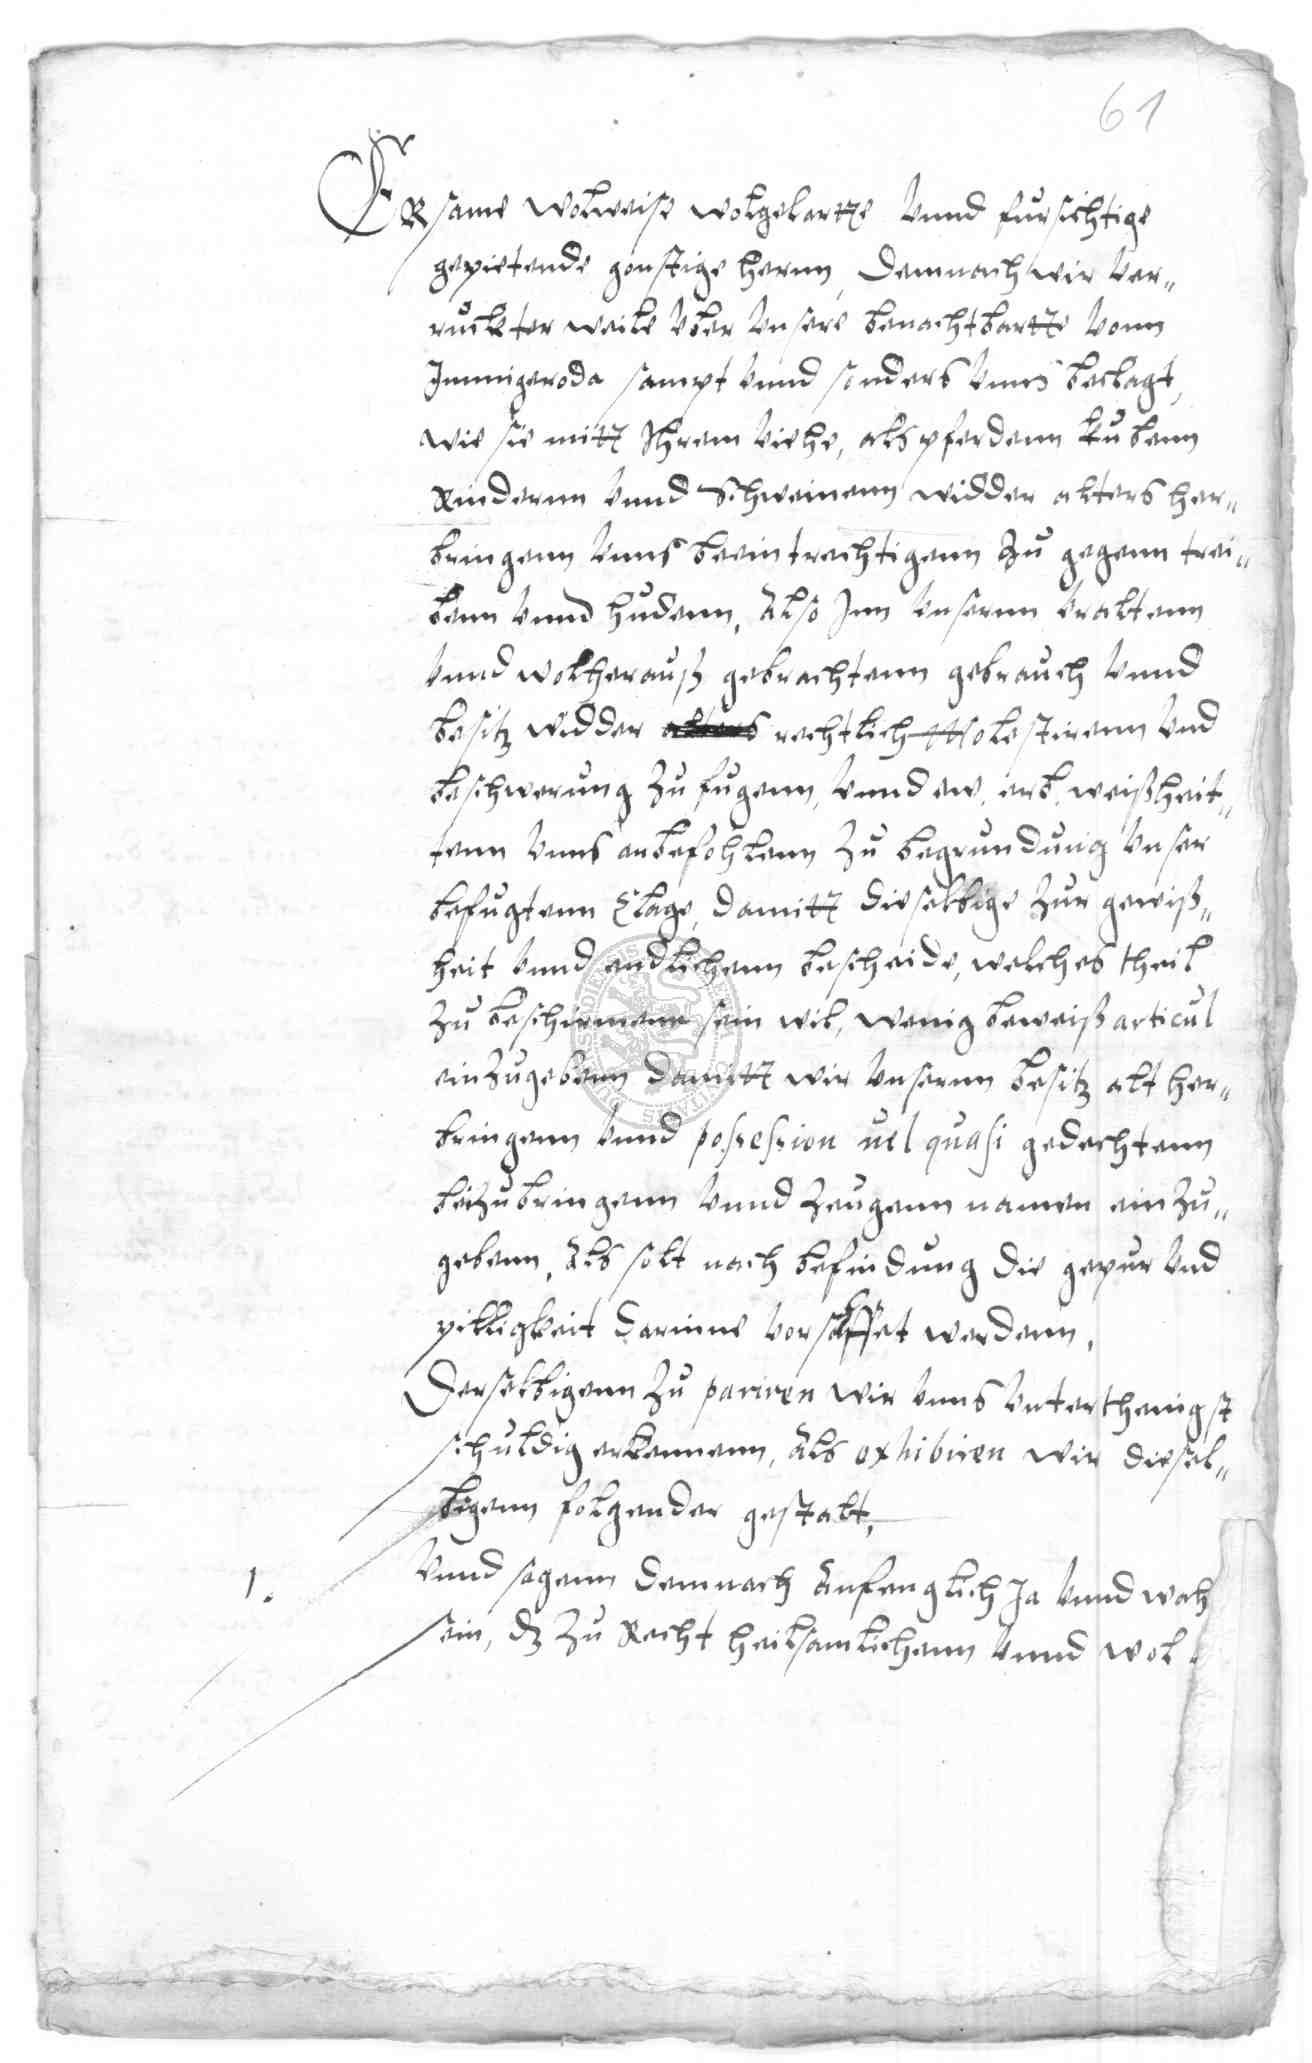 61
ERsame wolweise wolgelartte Vnnd fursichtige
gepietende gonstige hernn, Demnach wir ver„
ruckter weile Vber Vnsere benachtbartte vonn
Immigeroda sampt Vnnd sonders Vnns beclagt,
wie sie mitt Ihrem Viehe, als pferdenn kuhenn
Rindernn Vnnd Schweinenn widder alters her„
bringenn Vnns beeintrechtigenn Zu gegenn trei„
benn Vnnd hudenn, Also Inn Vnsernn Vraltenn
Vnnd wolherauß gebrachtenn gebrauch Vnnd
besitz widder alters rechtlich Molestirenn Vnd
beschwerung Zu fugenn, Vnnd ew. erb. weißheit„
tenn Vnns anbefohlenn Zu begrundung Vnser
befugtenn Clage, damitt dieselbige Zur gewiß„
heit Vnnd endlichenn bescheide, welches theil
Zu beschirmenn sein wil, wenig beweiß articul
einZugebenn damitt wir Vnsernn besitz alt her„
bringenn Vnnd possession uel quasi gedechtenn
beiZubringenn Vnnd Zeugenn namen ein Zu„
gebenn, Als solt nach befindung die gepur Vnd
pilligkeit darinne Vorschaffet werdenn,
Derselbigenn Zu pariren wir Vnns Vnterthenigst
schuldig erkennenn, Als exhibiren wir diesel„
bigenn folgender gestalt,
1. Vnnd sagenn demnach Anfenglich Ja Vnnd wah
sein, dz Zu Recht heilsamlichenn Vnnd wol